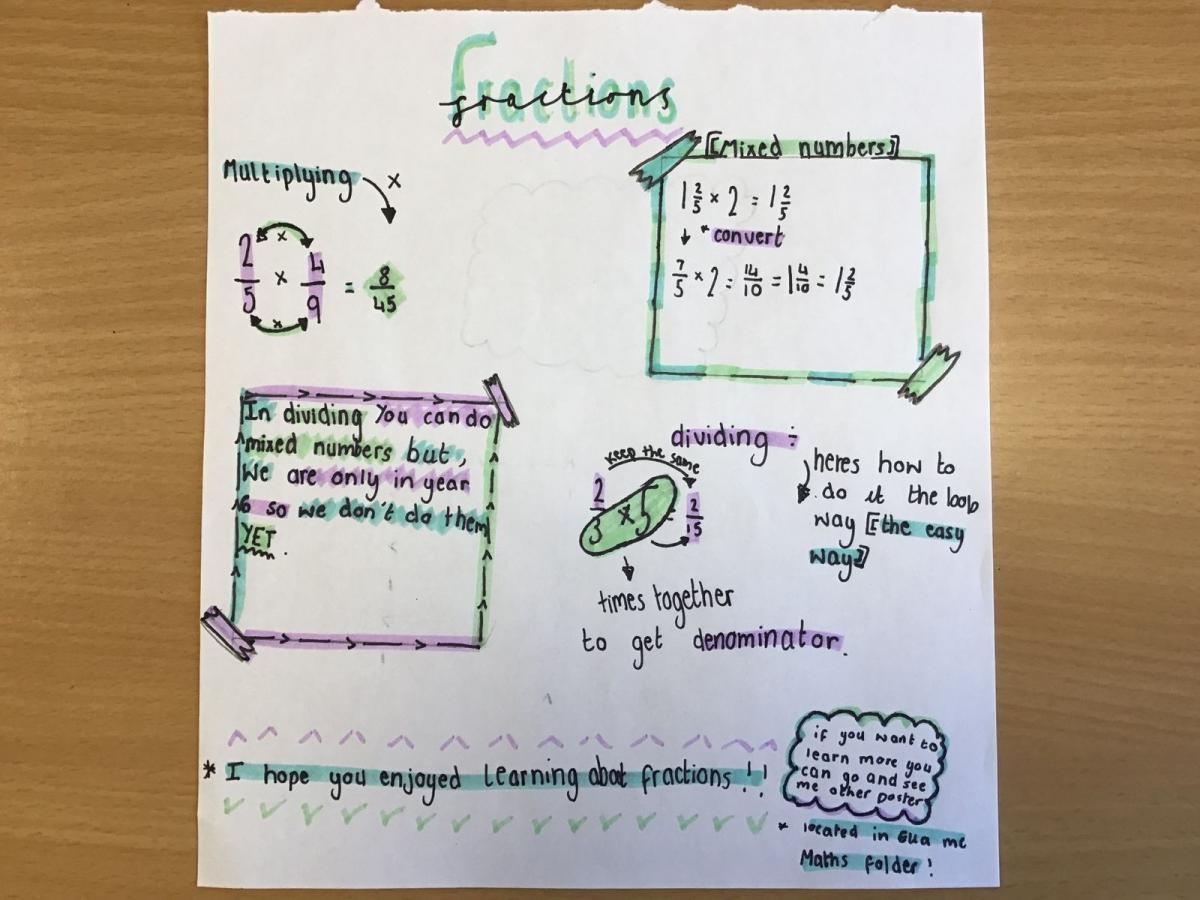 fractions
Multiplying x
x
2/5 x 4/9 = 8/45
x
[Mixed numbers]
1 2/5 x 2 = 1 2/5
* convert
7/5 x 2 = 14/10 = 1 4/10 = 1 2/5
In dividing You can do
mixed numbers but,
We are only in year
6 so we don't do them
YET.
dividing ÷
keep the same
2/3 x 5 = 2/15
times together
to get denominator.
heres how to
do it the loop
way [the easy
way]
* I hope you enjoyed Learning about fractions!!
if you want to
learn more you
can go and see
me other poster
* located in me
Maths folder!